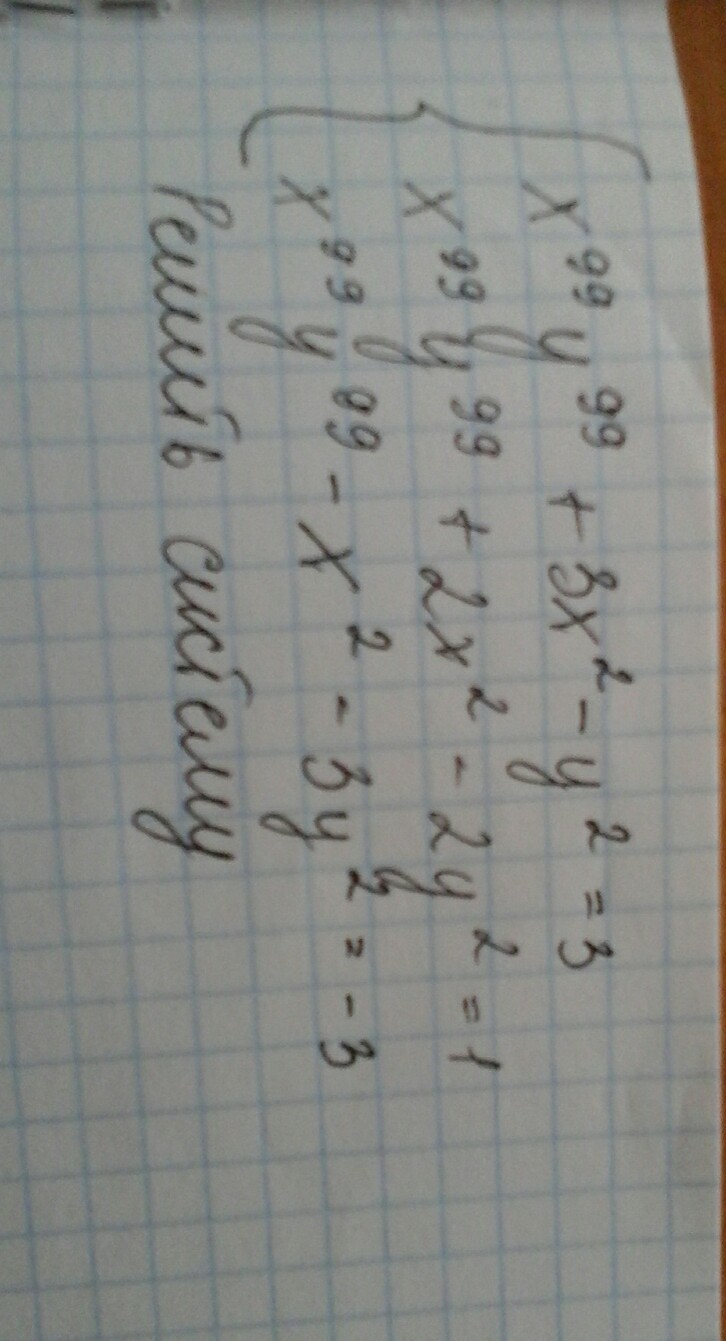 x⁹⁹y⁹⁹ + 3x² - y² = 3
x⁹⁹y⁹⁹ + 2x² - 2y² = 1
x⁹⁹y⁹⁹ - x² - 3y² = -3
Решить систему